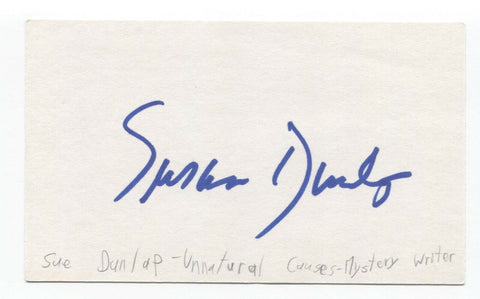 Susan Dunlap
Sue Dunlap - Unnatural Causes - Mystery Writer